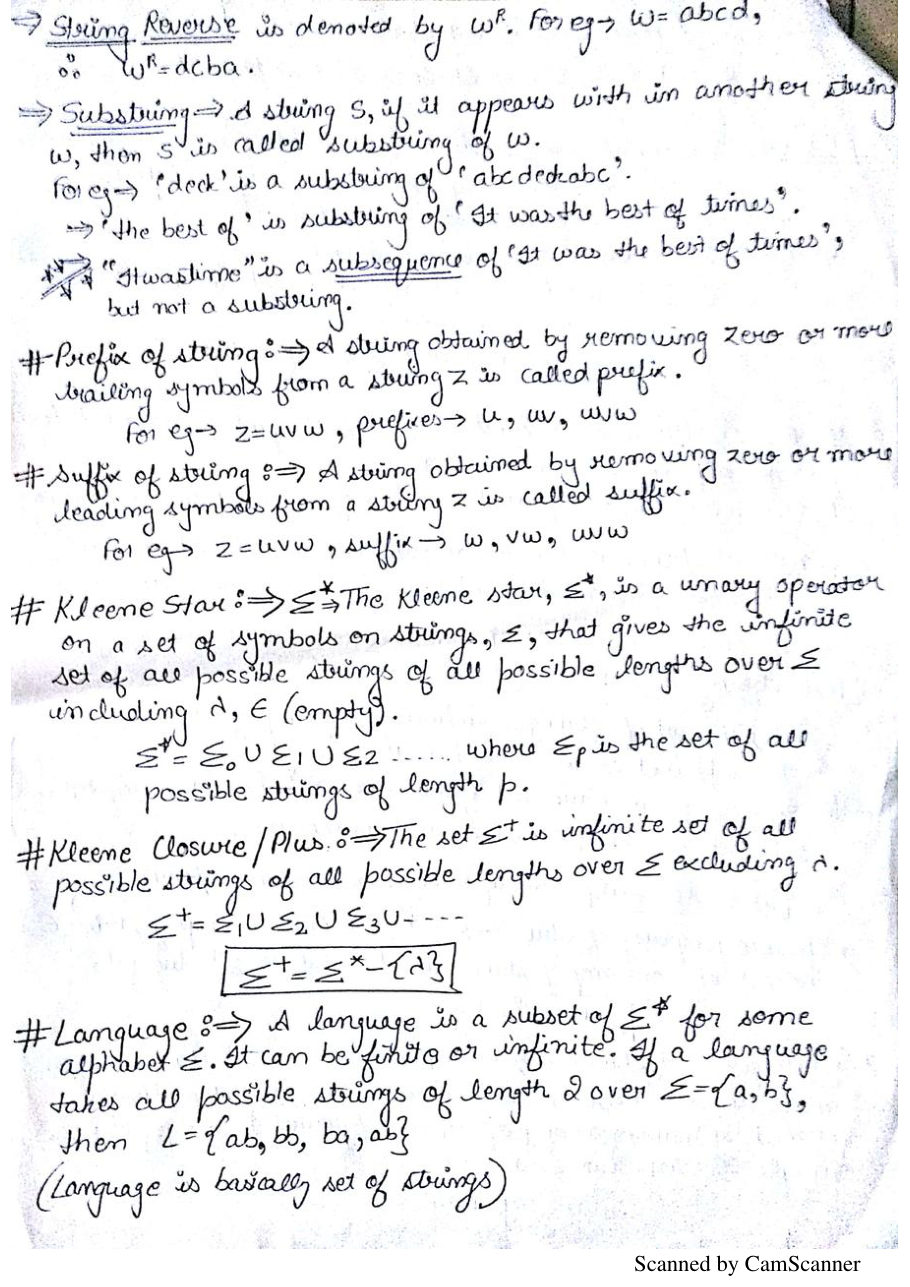 ⇒ String Reverse is denoted by wᴿ. For eg→ w= abcd,
∴ wᴿ=dcba.
⇒ Substring⇒ A string S, if it appears with in another string
w, then S is called substring of w.
For eg→ 'deck' is a substring of 'abcdeckabc'.
⇒ 'the best of' is substring of 'It was the best of times'.
"Itwastime" is a subsequence of 'It was the best of times',
but not a substring.
#Prefix of string:⇒ A string obtained by removing zero or more
trailing symbols from a string z is called prefix.
For eg→ z=uvw, prefixes→ u, uv, uvw
#Suffix of string:⇒ A string obtained by removing zero or more
leading symbols from a string z is called suffix.
For eg→ z=uvw, suffix→ w, vw, uvw
# Kleene Star:⇒Σ*⇒The Kleene star, Σ*, is a unary operator
on a set of symbols on strings, Σ, that gives the infinite
set of all possible strings of all possible lengths over Σ
including λ, ∈ (empty).
Σ*= Σ₀ ∪ Σ1 ∪ Σ2 ...... where Σp is the set of all
possible strings of length p.
#Kleene Closure/Plus:⇒The set Σ⁺ is infinite set of all
possible strings of all possible lengths over Σ excluding λ.
Σ⁺= Σ₁∪ Σ₂ ∪ Σ₃∪-----
Σ⁺= Σ*-{λ}
#Language:⇒ A language is a subset of Σ* for some
alphabet Σ. It can be finite or infinite. If a language
takes all possible strings of length 2 over Σ={a,b},
then L={ab, bb, ba, ab}
(Language is basically set of strings)
Scanned by CamScanner